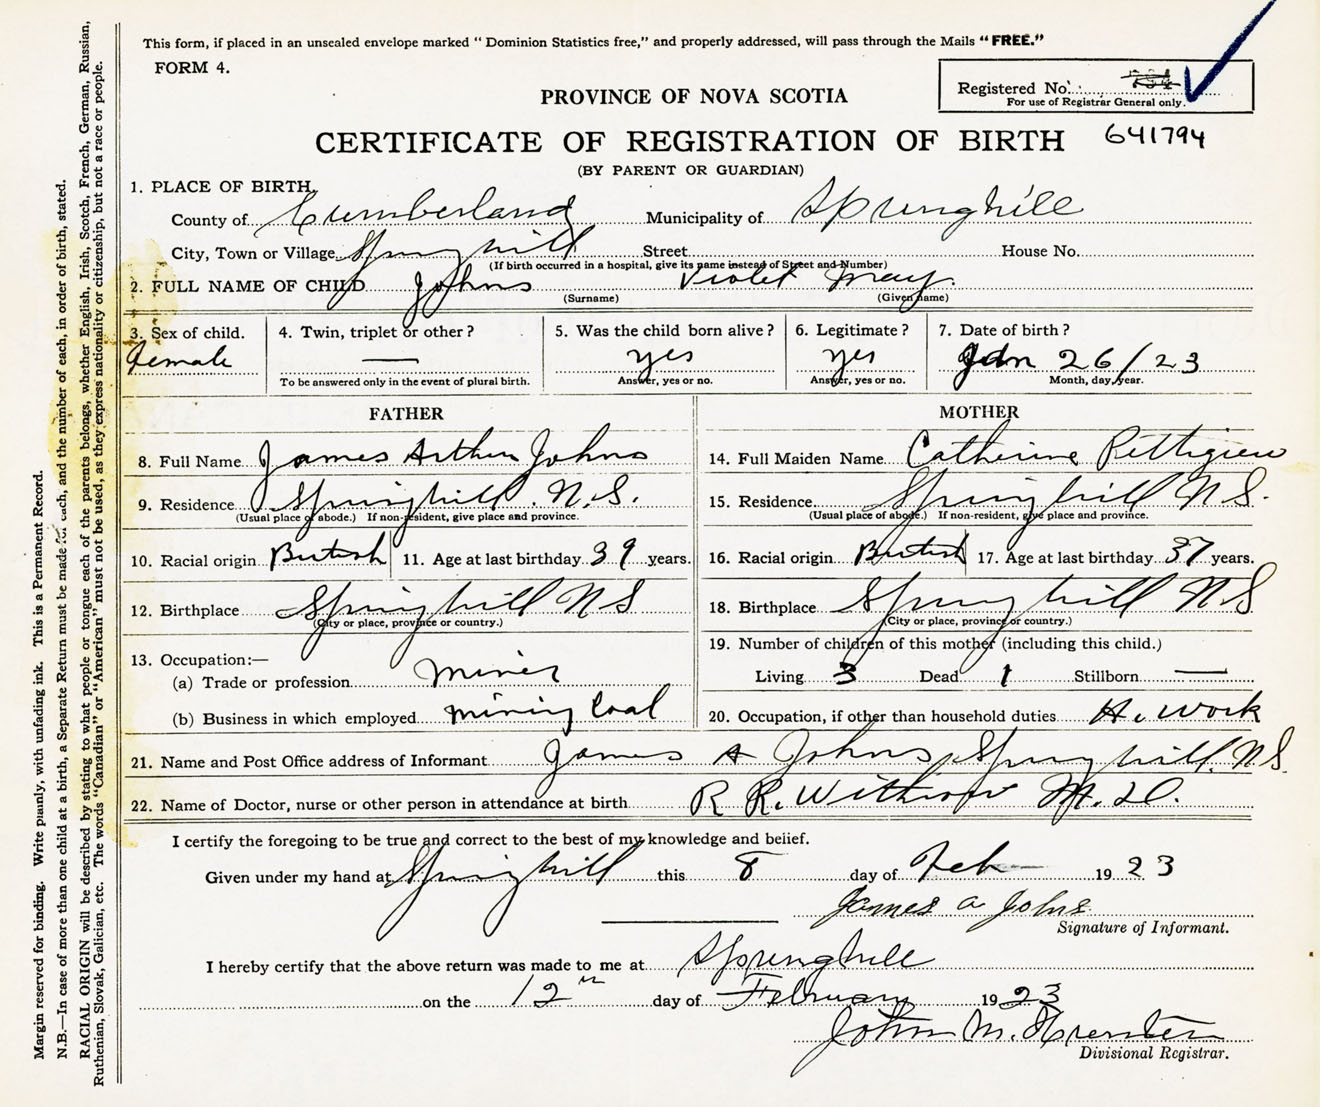 This form, if placed in an unsealed envelope marked “ Dominion Statistics free,” and properly addressed, will pass through the Mails “ FREE.”
FORM 4.
Registered No.
For use of Registrar General only.
PROVINCE OF NOVA SCOTIA
CERTIFICATE OF REGISTRATION OF BIRTH 641794
(BY PARENT OR GUARDIAN)
1. PLACE OF BIRTH,
County of Cumberland Municipality of Springhill
City, Town or Village Springhill Street House No.
(If birth occurred in a hospital, give its name instead of Street and Number)
2. FULL NAME OF CHILD Johns Violet May.
(Surname) (Given name)
3. Sex of child. 4. Twin, triplet or other ? 5. Was the child born alive ? 6. Legitimate ? 7. Date of birth ?
Female — yes yes Jan 26/23
To be answered only in the event of plural birth. Answer, yes or no. Answer, yes or no. Month, day, year.
FATHER
8. Full Name James Arthur Johns
9. Residence Springhill. N.S.
(Usual place of abode.) If non-resident, give place and province.
10. Racial origin British 11. Age at last birthday 39 years.
12. Birthplace Springhill NS
(City or place, province or country.)
13. Occupation:—
(a) Trade or profession miner
(b) Business in which employed mining Coal
MOTHER
14. Full Maiden Name Catherine Pettigrew
15. Residence Springhill NS.
(Usual place of abode.) If non-resident, give place and province.
16. Racial origin British 17. Age at last birthday 37 years.
18. Birthplace Springhill NS
(City or place, province or country.)
19. Number of children of this mother (including this child.)
Living 3 Dead 1 Stillborn —
20. Occupation, if other than household duties H. Work
21. Name and Post Office address of Informant James A Johns, Springhill. NS.
22. Name of Doctor, nurse or other person in attendance at birth R R. Withrow M.D.
I certify the foregoing to be true and correct to the best of my knowledge and belief.
Given under my hand at Springhill this 8 day of Feb 19 23
James A Johns
Signature of Informant.
I hereby certify that the above return was made to me at Springhill
on the 12th day of February 19 23
John M.
Divisional Registrar.
Margin reserved for binding. Write plainly, with unfading ink. This is a Permanent Record.
N.B.—In case of more than one child at a birth, a Separate Return must be made for each, and the number of each, in order of birth, stated.
RACIAL ORIGIN will be described by stating to what people or tongue each of the parents belongs, whether English, Irish, Scotch, French, German, Russian,
Ruthenian, Slovak, Galician, etc. The words “Canadian” or “American” must not be used, as they express nationality or citizenship, but not a race or people.